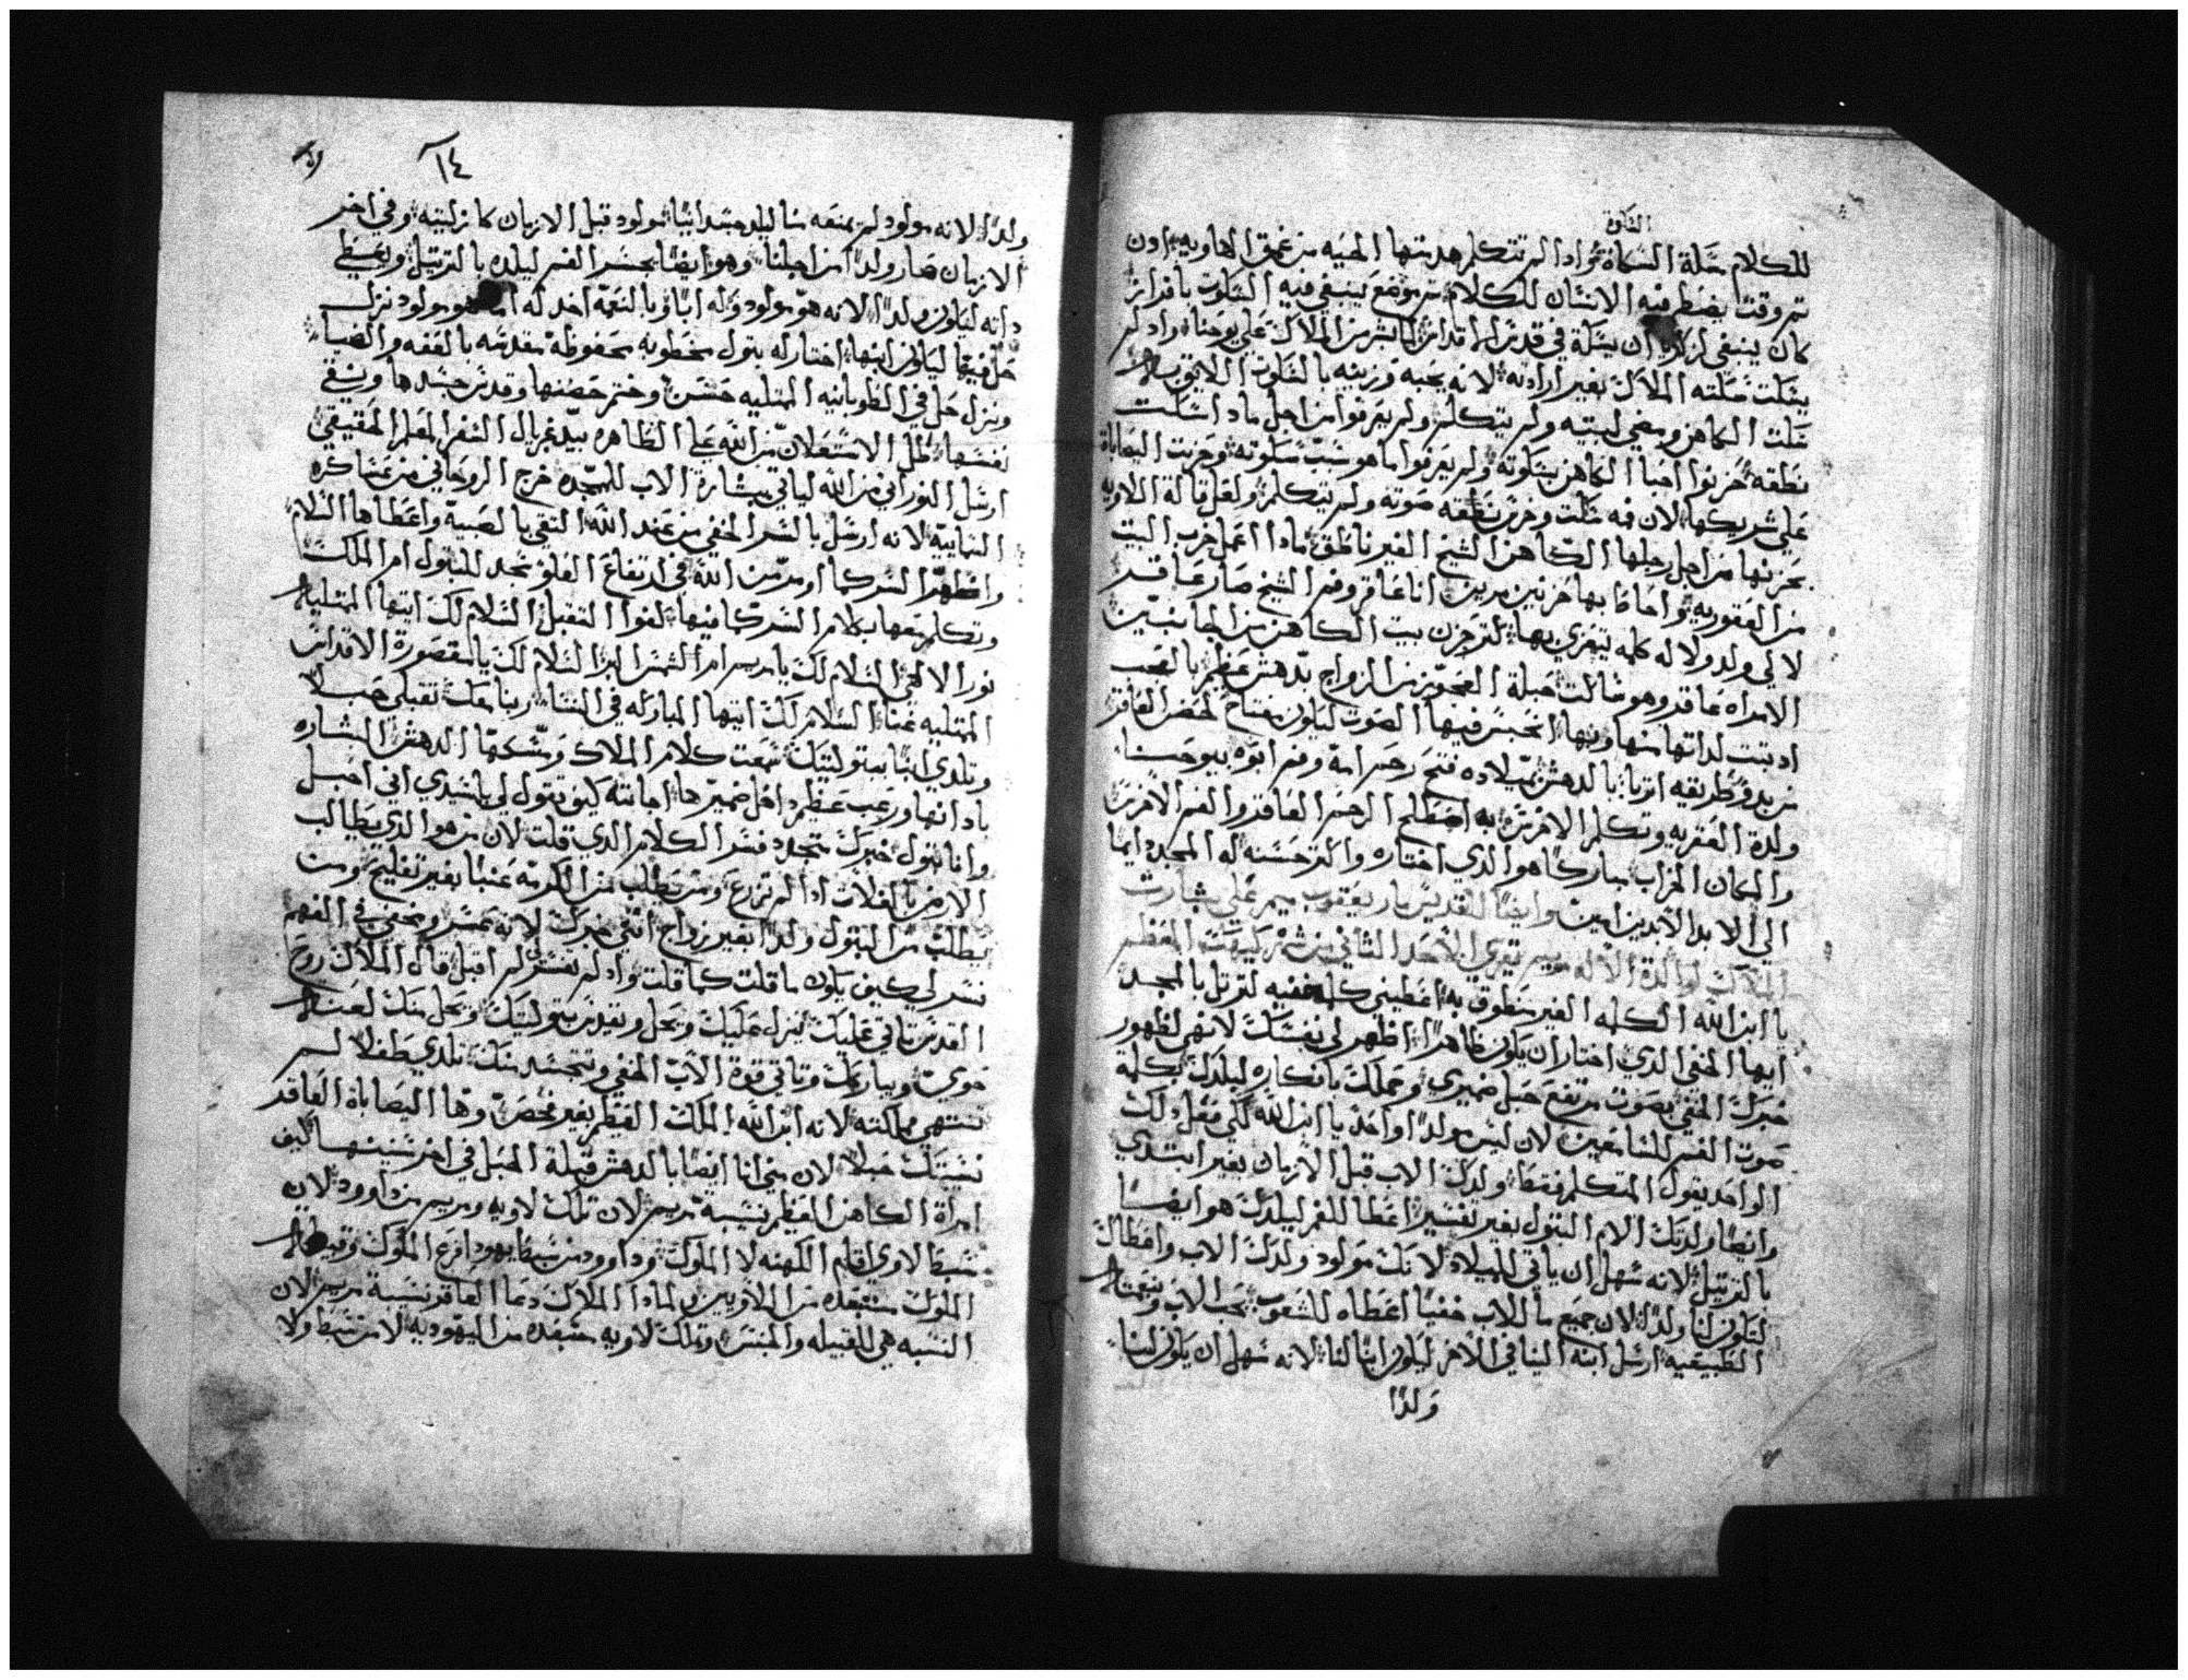 السكوة
للكلام سلة السكاة واذا لم تتكلم هدمتها الحيه من عمق الهاويه ادن
تم وقت يضطر فيه الانسان للكلام تم موضع ينبغي فيه السكوت بافراز
كان ينبغي لزكريا ان يسكة في قدس الاقداس لما بشر من الملاك علي يوحنا واد لم
يسكت سكته الملاك بغير ارادته لانه يحبه وزينه بالسكوت اللايق به
سكت الكاهن ومضي لبيته ولم يتكلم ولم يعرفوا من اجل ماد اسكت
نطقه حزنوا احبا الكاهن بسكوته ولم يعرفوا ما هو سبب سكوته وحزنت اليصاباة
علي شريكها لان فمه سكت وخرس نطقه صوته ولم يتكلم ولعل قالة اللاويه
بحزنها من اجل رجلها الكاهن الشيخ الغير ناطق مادا اعمل خرب البيت
من العقوريه واحاطا بها حزنين مرين انا عاقر وفم الشيخ صار عاقر
لا لي ولد ولا له كلمه يتعزي بها لقد حزن بيت الكاهن من الجانبين
الامراه عاقر وهو ساكت حبلة العجوز من الزواج بدهش عظيم بالعجب
ادبتت لداتها منها وبها انحبس فيها الصوت ليكون مفتاح لحضن العاقر
من بدو طريقه اتربا بالدهش بميلاده فتح رحم امه وفم ابوه بيوحنا
ولدة العقريه وتكلم الاخرس به اصطلح الرحم العاقر والفم الاخرس
والمكان الخراب مباركا هو الذي اختاره واكتر حسنه له المجد دايما
الي الابد الابدين امين وايضا للقديس مار يعقوب ميمر علي بشارت
الملاك لوالدة الاله مريم يقري الاحد الثاني من شهر كيهك المعظم
يا ابن الله الكلمه الغير منطوق به اعطيني كلمه خفيه لترتل بالمجد
ايها الخفي الذي اختار ان يكون ظاهرا اظهر لي نفسك لانهي لظهور
خبرك الخفي بصوت مرتفع حبل ضميري وحملك بافكاره ليلدك بكلمة
صوت الفم للسامعين لان ليس مولدا واحد يا ابن الله لكي معل لك
الواحد يقول المتكلم فقط ولدك الاب قبل الازمان بغير ابتدي
وايضا ولدتك الام البتول بغير تفسير اعطا للفم ليلدك هو ايضا
بالترتيل لانه سهل ان ياتي للميلاد لانك مولود ولدك الاب واعطاك
لتكون لنا ولدا لان جميع ما للاب خفيا اعطاه للشعوب بحب الاب ونعمته
الطبيعيه ارسل ابنه الينا في الاخر ليكون ابنا لنا لانه سهل ان يكون لنا
ولدا
١٤
ولدا لانه مولود لم يمنعه شا ليلد مبتدا ايضا مولود قبل الازمان كما نزلبيته وفي اخر
الازمان صار ولدا من اجلنا وهو ايضا يحسر الفم ليلده بالترتيل ويعطي
داته ليكون ولدا لانه هو مولود وله ابا وبالنعمه اخد له اما هو مولود نزل
حل فيها ليكون ابنها اختار له بتول مخطوبه محفوظة مقدسه بالعفه والضيا
ونزل حل في الطوبانيه الممتليه حسن وختم حضنها وقدس جسدها ونقي
نفسها كمل الاستعلان من الله علي الظاهره بيد غبريال السفر المعلم الحقيقي
ارسل النوراني من الله لياتي ببشارة الاب للسيده خرج الروحاني من عساكره
السمايية لانه ارسل بالسر الخفي من عند الله التقي بالصبية واعطاها السلام
واظهر السر كما اومر من الله في ارتفاع العلو سجد للبتول ام الملك
وتكلم معها بكلام السر كما فيها لغوا التقبل السلام لك ايتها الممتليه
نورا لاهي السلام لك يا مريم ام الشمس البر السلام لك يا مقصورة الاقداس
الممتليه غنا السلام لك ايتها المباركه في النسا ربنا معك تقبلي حبلا
وتلدي ابنا ببتوليتك سمعت كلام الملاك ومسكها الدهش البشاره
بادانها ورعب عظيم داخل ضميرها اجابته كيف تقول لي ياسيدي اني احبل
وانا بتول خبرك متجدد فسر الكلام الدي قلت لان من هو الدي يطالب
الارض بالغلات ادا لم تزرع ومن يطلب من الكرمه عنبا بغير تفليح ومن
يطلب من البتول ولدا بغير زواج انثي خبرك لانه عسر ومخفي في الفهم
فسر لي كيف يكون ما قلت كما قلت واد لم تفسر لي لم اقبل قال الملاك روح
القدس تاتي عليك ينزل عليك ويحل ويقدس بتوليتك ويحل منك لعنة
حوي ويباركك وتاتي قوة الاب الخفي وتتجسد منك تلدي طفلا لم
تنتهي مملكته لانه ابن الله الملك العظيم بغير فحص وها اليصاباة العاقر
نسيبتك حبلا لان هي انا ايضا بالدهش قبلة الحبل في اخر سنينها كيف
امراة الكاهن العظيم نسيبة مريم لان تلك لاويه ومريم من داوود لان
سبط لاوي اقام الكهنه لا الملوك وداوود من سبط يهودا فرع الملوك وقبيلة
الملوك مبتعده من اللاويين لمادا الملاك دعا العاقر نسيبة مريم لان
النسبه هي للقبيله والجنس وتلك لاويه مبتعده من اليهوديه لا من سبط ولا